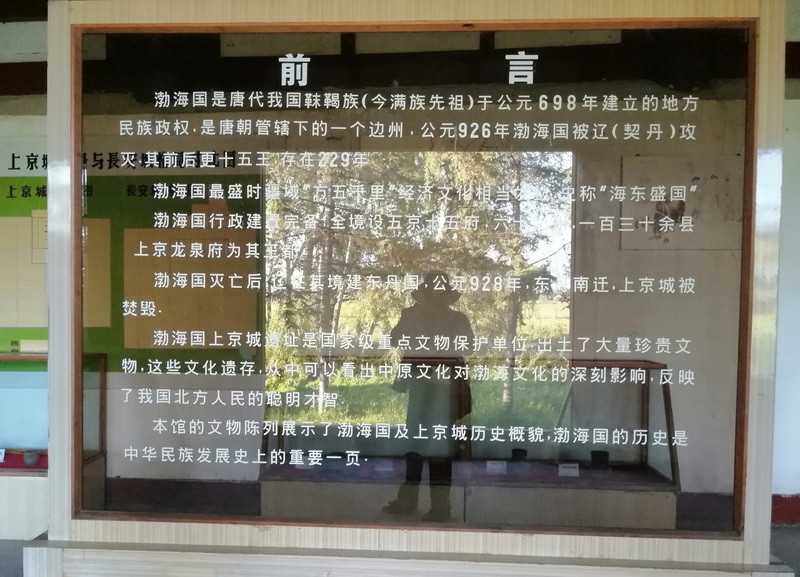 前言
渤海国是唐代我国靺鞨族(今满族先祖)于公元698年建立的地方
民族政权,是唐朝管辖下的一个边州,公元926年渤海国被辽(契丹)攻
灭,其前后更十五王,存在229年
渤海国最盛时疆域"方五千里"经济文化相当 史称"海东盛国"
渤海国行政建置完备,全境设五京十五府,六十 ,一百三十余县
上京龙泉府为其王都
渤海国灭亡后, 其境建东丹国,公元928年,东 南迁,上京城被
焚毁.
渤海国上京城遗址是国家级重点文物保护单位,出土了大量珍贵文
物,这些文化遗存,从中可以看出中原文化对渤海文化的深刻影响,反映
了我国北方人民的聪明才智.
本馆的文物陈列展示了渤海国及上京城历史概貌,渤海国的历史是
中华民族发展史上的重要一页.
上京城 与長安城
上京城
長安城